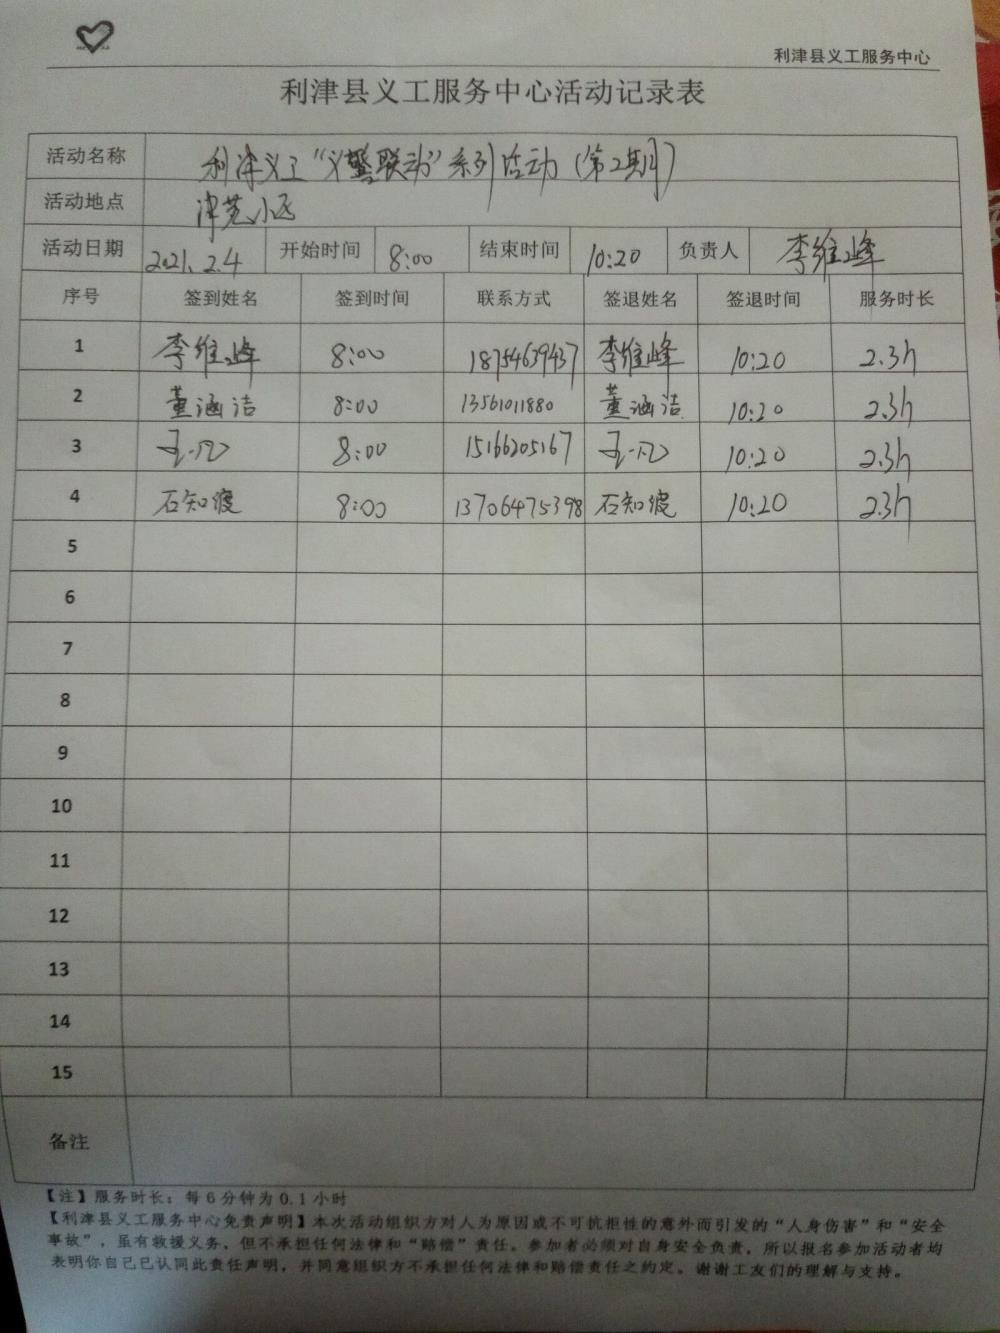 利津县义工服务中心
利津县义工服务中心活动记录表
活动名称 利津义工“义警联动”系列活动（第2期）
活动地点 津苑小区
活动日期 2021.2.4 开始时间 8:00 结束时间 10:20 负责人 李维峰
序号 签到姓名 签到时间 联系方式 签退姓名 签退时间 服务时长
1 李维峰 8:00 18754639437 李维峰 10:20 2.3h
2 董涵洁 8:00 13561011880 董涵洁 10:20 2.3h
3 8:00 15166205167 10:20 2.3h
4 石知渡 8:00 13706475398 石知渡 10:20 2.3h
5
6
7
8
9
10
11
12
13
14
15
备注
【注】服务时长：每6分钟为0.1小时
【利津县义工服务中心免责声明】本次活动组织方对人为原因或不可抗拒性的意外而引发的“人身伤害”和“安全
事故”，虽有救援义务，但不承担任何法律和“赔偿”责任。参加者必须对自身安全负责，所以报名参加活动者均
表明你自己已认同此责任声明，并同意组织方不承担任何法律和赔偿责任之约定。谢谢工友们的理解与支持。